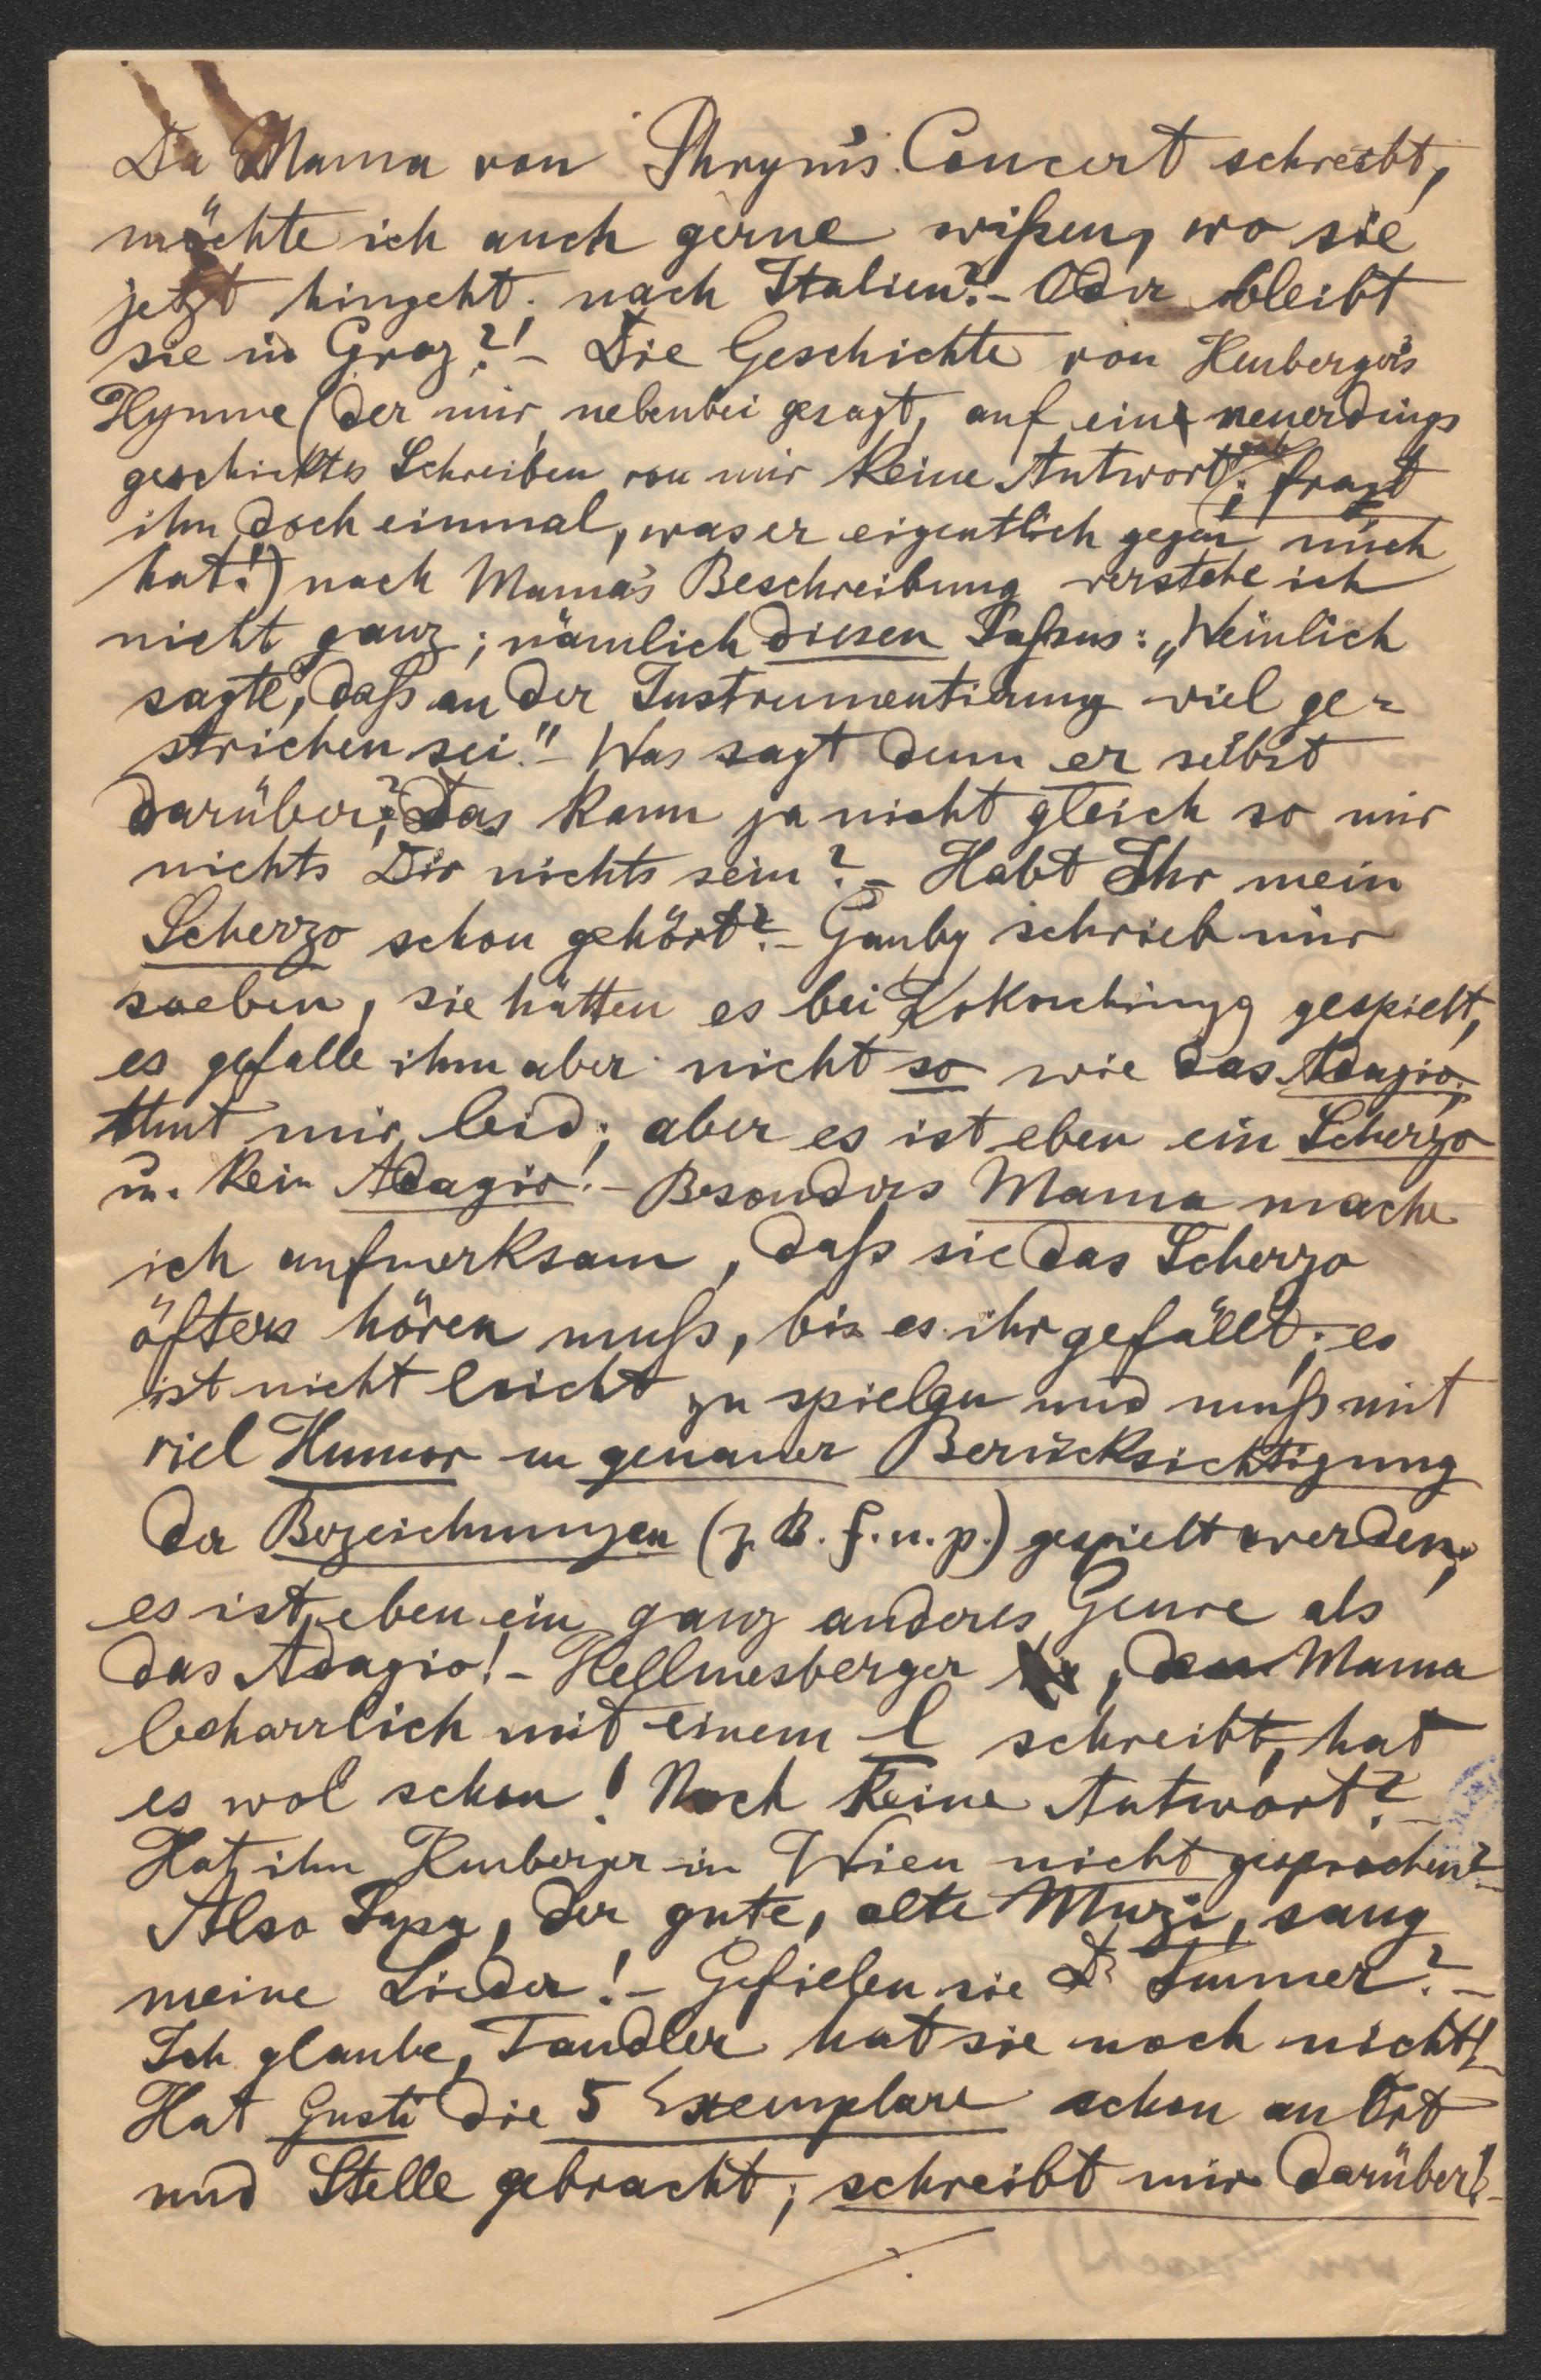 Da Mama von Phrym's Concert schreibt,
möchte ich auch gerne wißen, wo sie
jetzt hingeht; nach Italien? - Oder bleibt
sie in Graz?! - Die Geschichte von Heuberger's
Hymne (der mir nebenbei gesagt, auf ein neuerdings
geschicktes Schreiben von mir keine Antwort gab; fragt
ihn doch einmal, was er eigentlich gegen mich
hat!) nach Mama's Beschreibung verstehe ich
nicht ganz; nämlich diesen Paßus: „Weinlich
sagte, daß an der Instrumentirung viel ge=
strichen sei." - Was sagt denn er selbst
darüber?; Das kann ja nicht gleich so mir
nichts Dir nichts sein? - Habt Ihr mein
Scherzo schon gehört? - Gauby schrieb mir
soeben, sie hätten es bei gespielt,
es gefalle ihm aber nicht so wie das Adagio;
thut mir leid; aber es ist eben ein Scherzo
u. kein Adagio! - Besonders Mama mache
ich aufmerksam, daß sie das Scherzo
öfters hören muß, bis es ihr gefällt; es
ist nicht leicht zu spielen und muß mit
viel Humor u genauer Berücksichtigung
der Bezeichnungen (z. B. f. u. p.) gespielt werden;
es ist eben ein ganz anderes Genre als
das Adagio! - Hellmesberger, den Mama
beharrlich mit einem l schreibt, hat
es wol schon! Noch keine Antwort? -
Hat ihn Heuberger in Wien nicht gesprochen? -
Also Papa, der gute, alte Muzi, sang
meine Lieder! - Gefielen sie Dr ? -
Ich glaube, Tandler hat sie noch nicht! -
Hat Gusti die 5 Exemplare schon an Ort
und Stelle gebracht; schreibt mir darüber! -